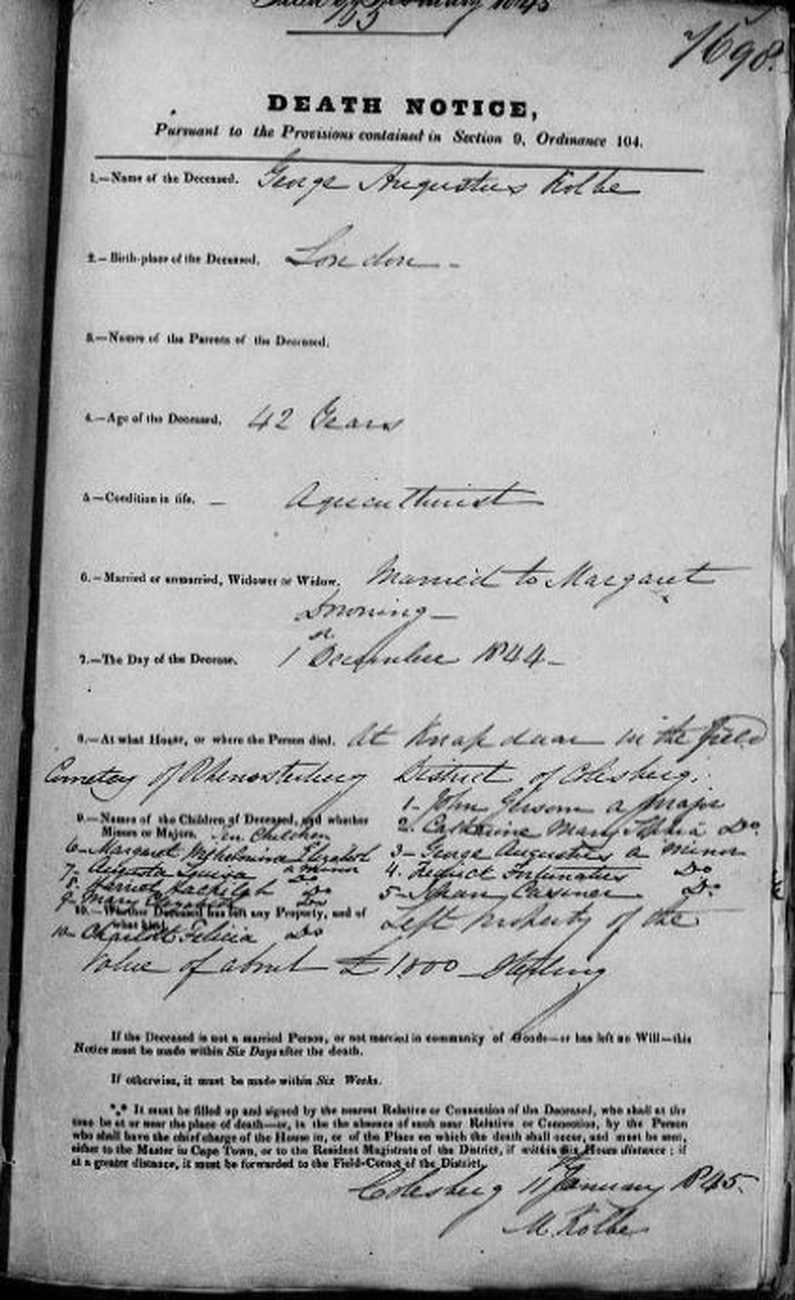 February 1845
7698.
DEATH NOTICE,
Pursuant to the Provisions contained in Section 9, Ordinance 104.
1.—Name of the Deceased. George Augustus Kolbe
2.—Birth-place of the Deceased. London –
3.—Names of the Parents of the Deceased.
4.—Age of the Deceased. 42 Years
5.—Condition in life. – Agriculturist
6.—Married or unmarried, Widower or Widow. Married to Margaret
Downing –
7.—The Day of the Decease. 1st December 1844 –
8.—At what House, or where the Person died. At Knapdaar in the Field
Cornetcy of Rhenosterberg District of Colesberg.
9.—Names of the Children of Deceased, and whether
Minors or Majors. Ten Children
1- John a Major
2. Catharine Mary Sophia Do
3- George Augustus a Minor
4. Fortunatus Do
5- Do
6- Margaret Wilhelmina Elizabeth
a Minor
7- Augusta Louisa Do
8. Harriet Do
9- Mary Elizabeth Do
10- Charlotte Felicia Do
10.—Whether Deceased has left any Property, and of
what kind. Left Property of the
Value of about £1.000 – Sterling
If the Deceased is not a married Person, or not married in community of Goods—or has left no Will—this
Notice must be made within Six Days after the death.
If otherwise, it must be made within Six Weeks.
*** It must be filled up and signed by the nearest Relative or Connection of the Deceased, who shall at the
time be at or near the place of death—or, in the absence of such near Relative or Connection, by the Person
who shall have the chief charge of the House in, or of the Place on which the death shall occur, and must be sent,
either to the Master in Cape Town, or to the Resident Magistrate of the District, if within Six Hours distance; if
at a greater distance, it must be forwarded to the Field-Cornet of the District.
Colesberg 11 January 1845.
M. Kolbe